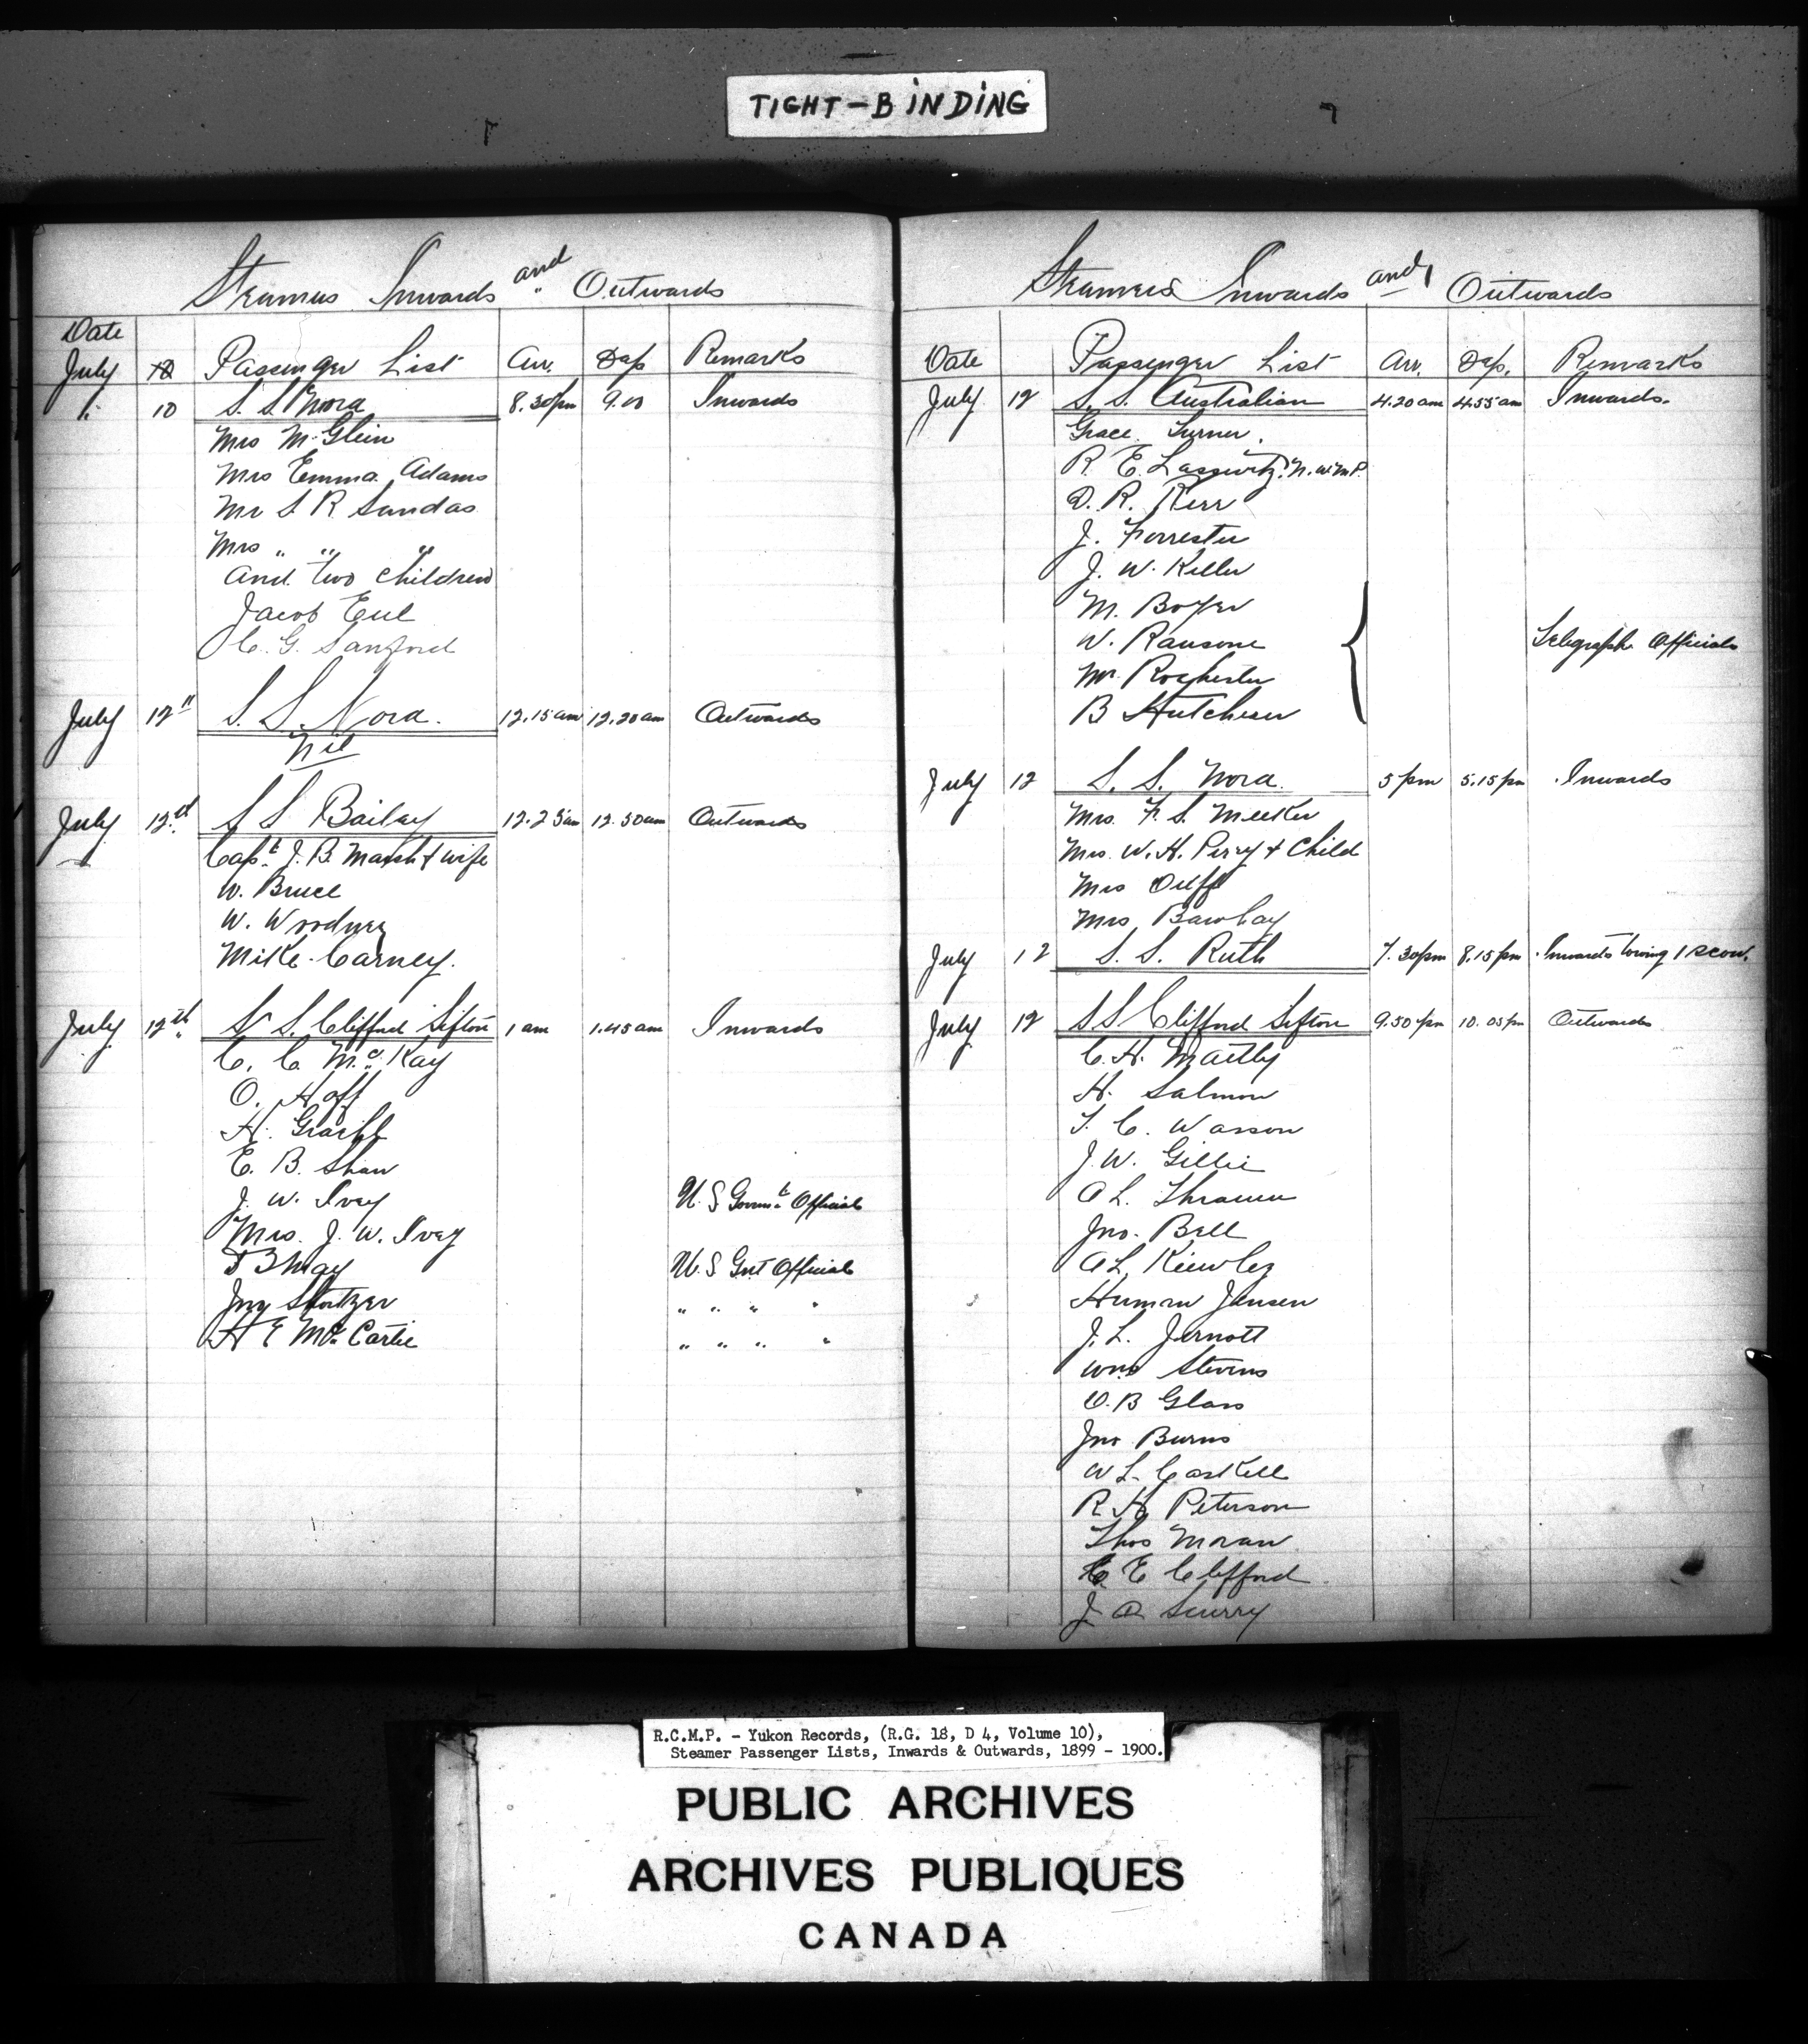 TIGHT-BINDING
Steamers Inwards and Outwards
Date
July 12 Passenger List Arr. Dep Remarks
" 10 S. S. Nora 8.30pm 9.00 Inwards
Mrs M. Glein
Mrs Emma Adams
Mr S. R. Sandas
Mrs " " "
And two children
Jacob Eul
C. G. Sanford
July 12" S. S. Nora. 12.15am 12.20am Outwards
Nil
July 12th S S Bailey 12.25am 12.50am Outwards
Capt. J. B. Marsh & wife
W. Bruce
W.
Mike Carney.
July 12th S. S. Clifford Sifton 1 am 1.45am Inwards
C. C. McKay
O. Hoff
H.
E. B. Shaw
J. W. Ivey U. S Govmt. Official
Mrs. J. W. Ivey
May U. S Gvt Official
Jny " " " "
H E McCartie " " " "
Steamers Inwards and Outwards
Date Passenger List Arr. Dep. Remarks
July 12 S. S. Australian 4.20am 4.55am Inwards.
Grace Turner.
R. E. N.W.M.P.
D. R. Kerr
J. Forrester
J. W. Keller
M. Boyer
W. Ransone
Telegraph Officials
Mr. Rochester
B Hutcheson
July 12 S. S. Nora. 5 pm 5.15pm Inwards
Mrs. F. S. Meeker
Mrs. W. H. Perry & Child
Mrs
Mrs Barclay
July 12 S. S. Ruth 7.30pm 8.15pm Inwards towing 1 scow.
July 12 S S Clifford Sifton 9.50pm 10.05pm Outwards
C. H. Martly
H. Salmon
T. C. Wasson
J. W. Gillie
A L.
Jno. Bell
A L.
Herman Jensen
J. L. Jernott
Wm Stevens
O. B Glass
Jno Burns
W L. Caskell
R H Peterson
Thos Moran
C. E Clifford
J. A Scurry
R.C.M.P. - Yukon Records, (R.G. 18, D 4, Volume 10),
Steamer Passenger Lists, Inwards & Outwards, 1899 - 1900.
PUBLIC ARCHIVES
ARCHIVES PUBLIQUES
CANADA